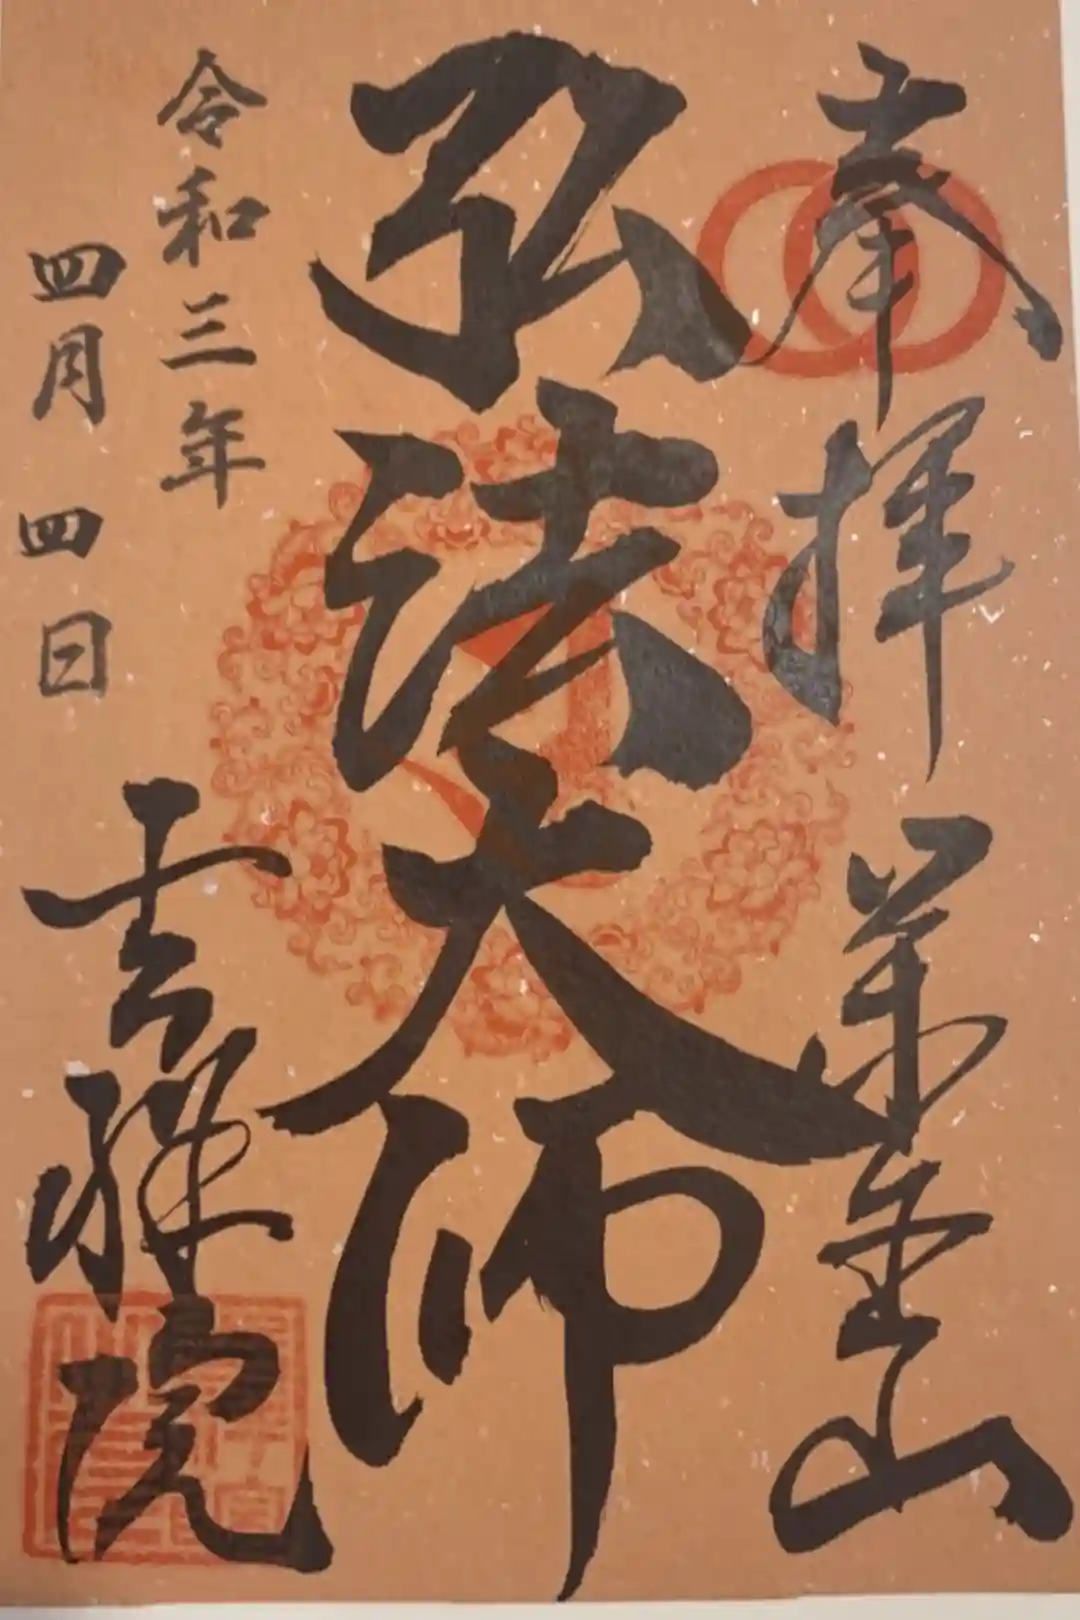 奉拝
弘法大師
令和三年
四月四日
吉祥院